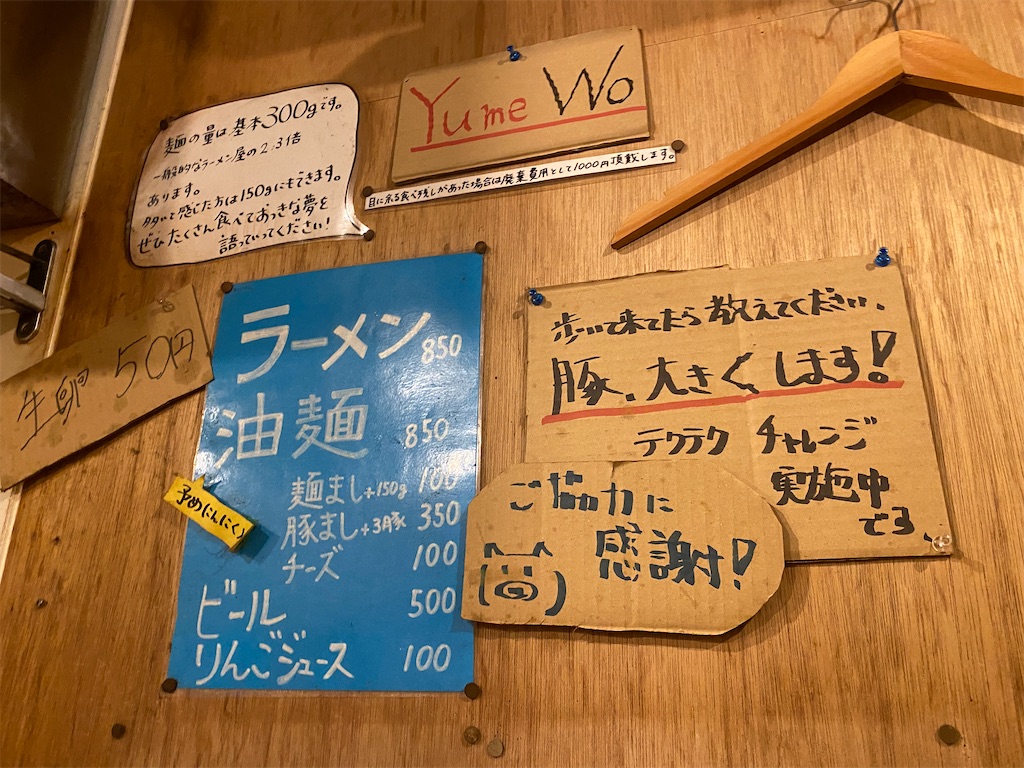 Yume Wo
麺の量は基本300gです。
一般的なラーメン屋の2,3倍
あります。
多いと感じた方は150gにもできます。
ぜひたくさん食べておっきな夢を
語っていってください!
目に余る食べ残しがあった場合は廃棄費用として1000円頂戴します。
生卵 50円
ラーメン 850
油麺 850
麺まし+150g 100
豚まし+3豚 350
チーズ 100
ビール 500
りんごジュース 100
予めにんにく
歩いて来てたら教えてください、
豚、大きくします!
テクテク チャレンジ
実施中
です
ご協力に
感謝!